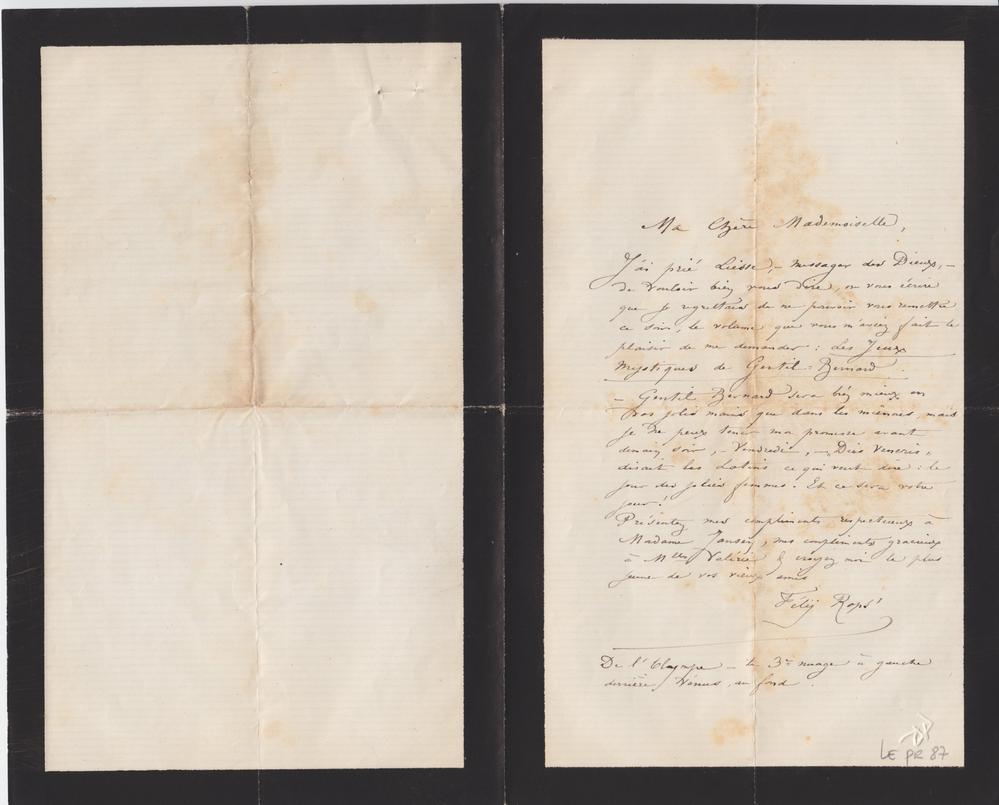 Ma Chère Mademoiselle,
J'ai prié Liesse, – messager des Dieux, –
de vouloir bien vous dire, ou vous écrire
que je regrettais de ne pouvoir vous remettre
ce soir, le volume que vous m'aviez fait le
plaisir de me demander : Les Jeux
Mystiques de Gentil-Bernard.
– Gentil Bernard sera bien mieux en
vos jolies mains que dans les miennes mais
je ne peux tenir ma promesse avant
demain soir, – Vendredi, – Dies Veneris,
disait les Latins ce qui veut dire : le
jour des jolies femmes. Et ce sera votre
jour !
Présentez mes compliments respectueux à
Madame Jansen, mes compliments gracieux
à Mlle Valérie & croyez moi le plus
jeune de vos vieux amis
Félix Rops
De l'Olympe – le 3e nuage à gauche
derrière Vénus, au fond.
LE PR 87